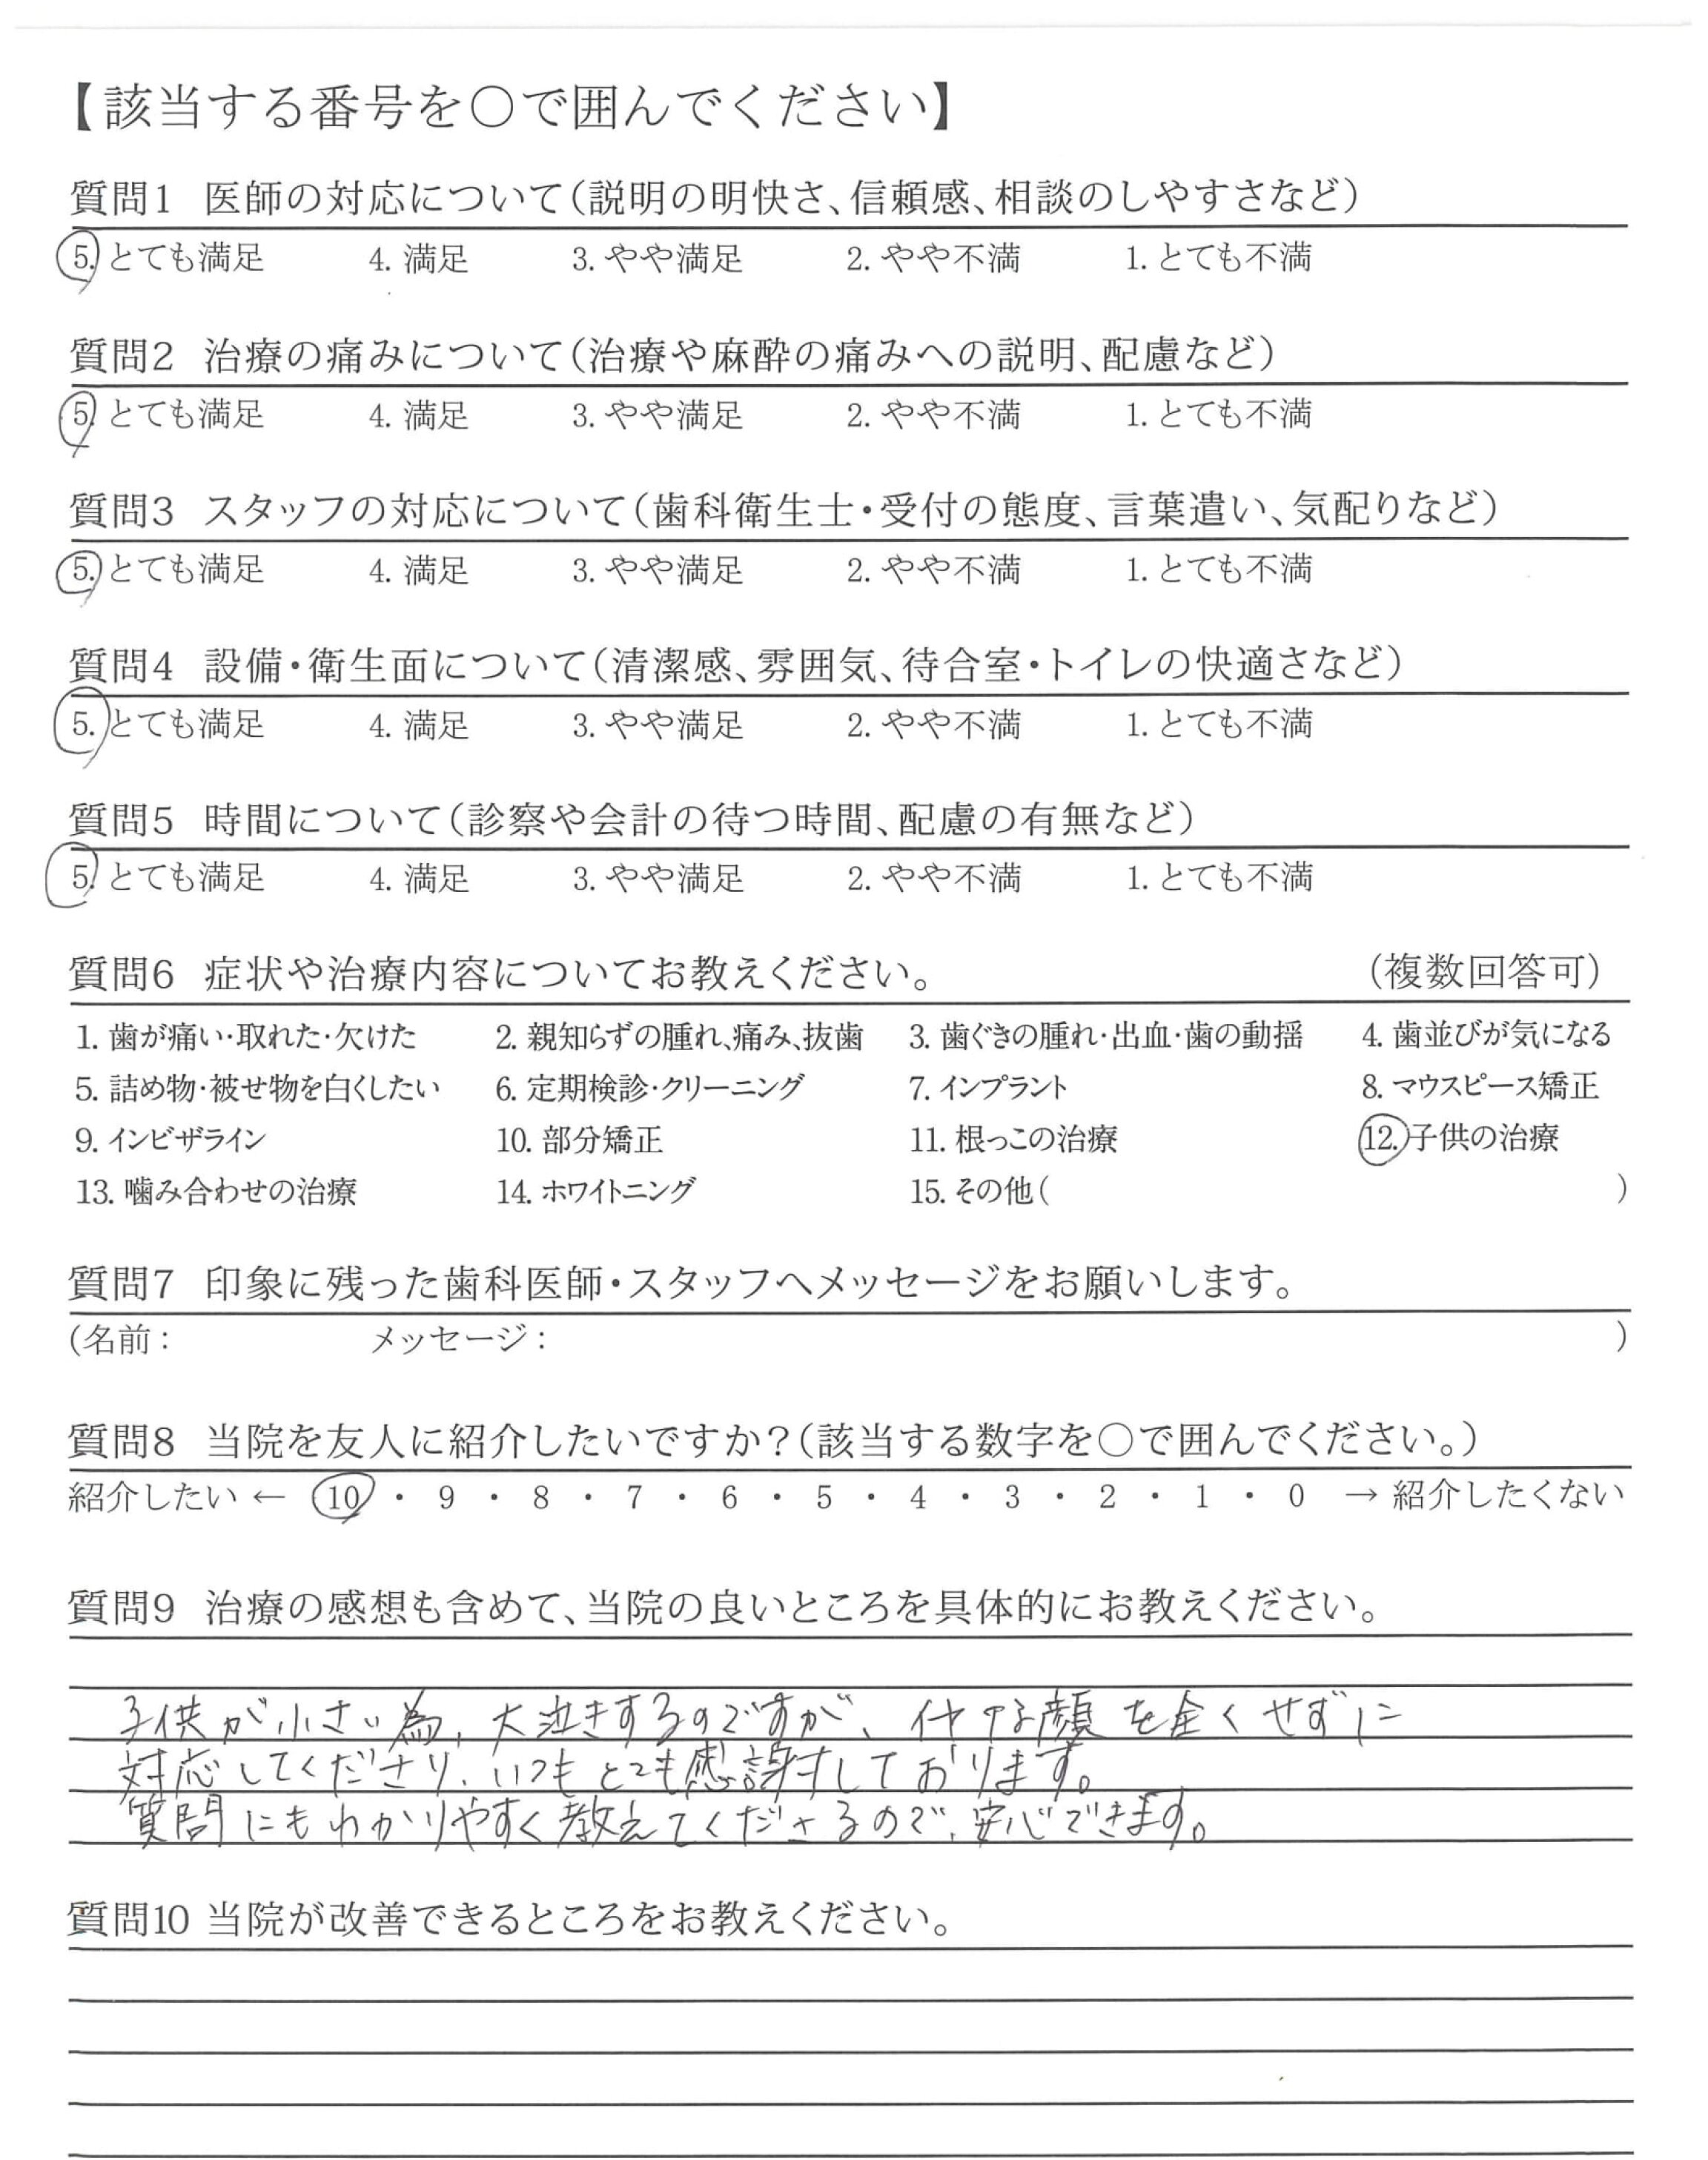 【該当する番号を○で囲んでください】
質問1 医師の対応について(説明の明快さ、信頼感、相談のしやすさなど)
5. とても満足 4. 満足 3. やや満足 2. やや不満 1. とても不満
質問2 治療の痛みについて(治療や麻酔の痛みへの説明、配慮など)
5. とても満足 4. 満足 3. やや満足 2. やや不満 1. とても不満
質問3 スタッフの対応について(歯科衛生士・受付の態度、言葉遣い、気配りなど)
5. とても満足 4. 満足 3. やや満足 2. やや不満 1. とても不満
質問4 設備・衛生面について(清潔感、雰囲気、待合室・トイレの快適さなど)
5. とても満足 4. 満足 3. やや満足 2. やや不満 1. とても不満
質問5 時間について(診察や会計の待つ時間、配慮の有無など)
5. とても満足 4. 満足 3. やや満足 2. やや不満 1. とても不満
質問6 症状や治療内容についてお教えください。 (複数回答可)
1. 歯が痛い・取れた・欠けた 2. 親知らずの腫れ、痛み、抜歯 3. 歯ぐきの腫れ・出血・歯の動揺 4. 歯並びが気になる
5. 詰め物・被せ物を白くしたい 6. 定期検診・クリーニング 7. インプラント 8. マウスピース矯正
9. インビザライン 10. 部分矯正 11. 根っこの治療 12. 子供の治療
13. 噛み合わせの治療 14. ホワイトニング 15. その他( )
質問7 印象に残った歯科医師・スタッフへメッセージをお願いします。
(名前: メッセージ: )
質問8 当院を友人に紹介したいですか?(該当する数字を○で囲んでください。)
紹介したい ← 10 ・ 9 ・ 8 ・ 7 ・ 6 ・ 5 ・ 4 ・ 3 ・ 2 ・ 1 ・ 0 → 紹介したくない
質問9 治療の感想も含めて、当院の良いところを具体的にお教えください。
子供が小さい為、大泣きするのですが、イヤな顔を全くせずに
対応してくださり、いつもとても感謝しております。
質問にもわかりやすく教えてくださるので、安心できます。
質問10 当院が改善できるところをお教えください。